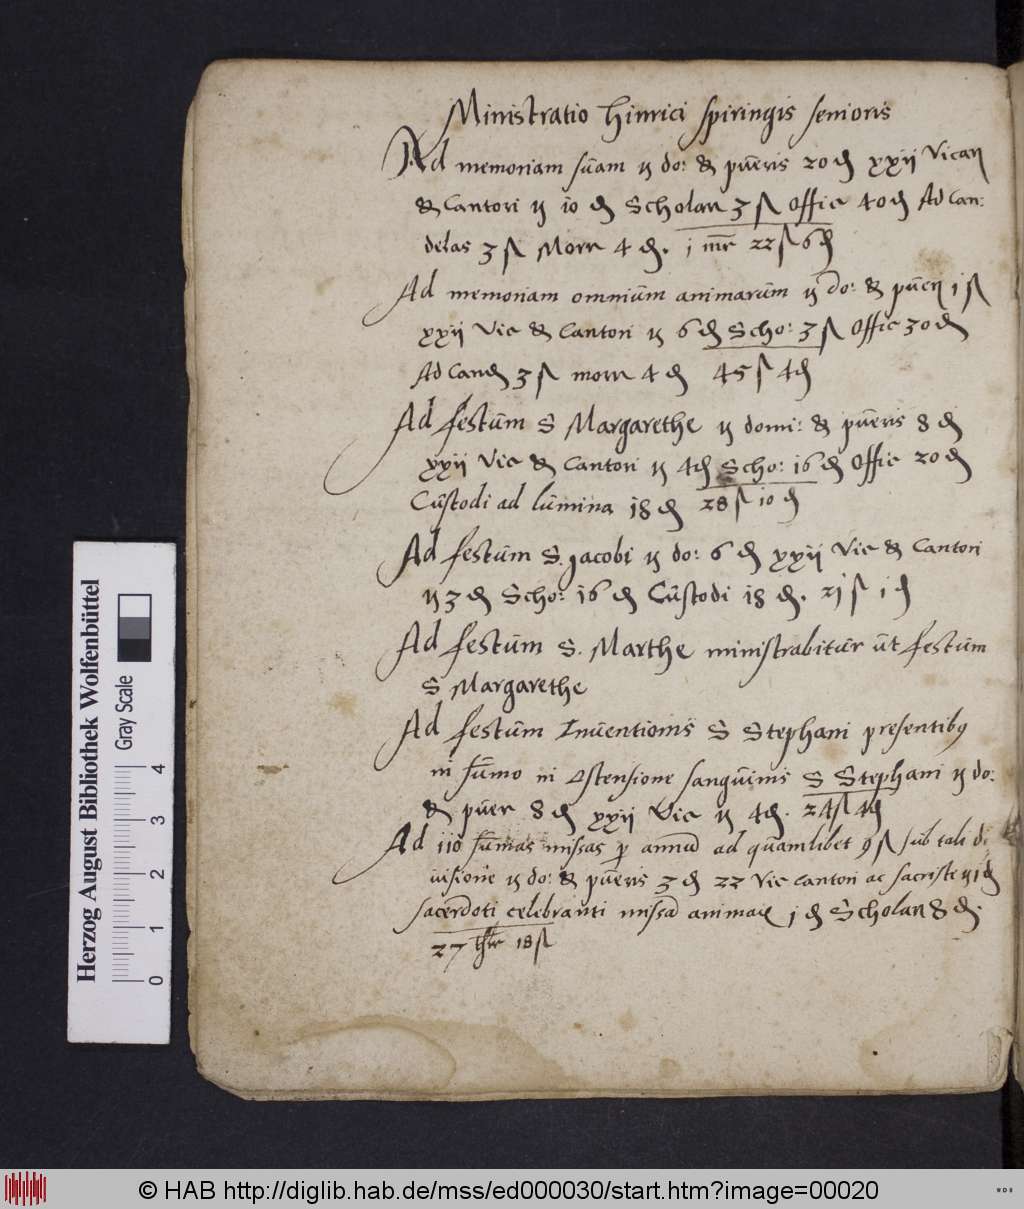 Ministratio Hinrici Spiringis senioris
Ad memoriam suam ÿ do: & pueris 20 ₰ xxij Vicarı
& Cantori ÿ 10 ₰ Schoları 3 ſ Offic 40 ₰ Ad Can:
delas 3 ſ Morr 4 ₰. j mr 22 ſ 6 ₰
Ad memoriam omnium animarum ÿ do: & pueri 1 ſ
xxij Vic & Cantori ÿ 6 ₰ Scho: 3 ſ Offic 30 ₰
Ad Cand 3 ſ morr 4 ₰ 45 ſ 4 ₰
Ad festum S Margarethe ÿ domi: & pueris 8 ₰
xxij Vic & Cantori ÿ 4 ₰ Scho: 16 ₰ Offic 20 ₰
Custodi ad lumina 18 ₰ 28 ſ 10 ₰
Ad festum S. Jacobi ÿ do: 6 ₰ xxij Vic & Cantori
ÿ 3 ₰ Scho: 16 ₰ Custodi 18 ₰. 21 ſ 1 ₰
Ad festum S. Marthe ministrabitur ut festum
S Margarethe
Ad festum Inventionis S Stephani presentibus
in summo in Ostensione sanguinis S Stephani ÿ do:
& puer 8 ₰ xxij Vic ÿ 4 ₰. 24 ſ 4 ₰
Ad 110 summas missas p annu ad quamlibet 9 ſ sub tali di
uisione ÿ do: & pueris 3 ₰ 22 Vic Cantori ac sacriste ÿ 1 ₰
sacerdoti celebranti missa animarum 1 ₰ Schoları 8 ₰.
27 18 ſ
Herzog August Bibliothek Wolfenbüttel
Gray Scale
0 1 2 3 4
© HAB http://diglib.hab.de/mss/ed000030/start.htm?image=00020